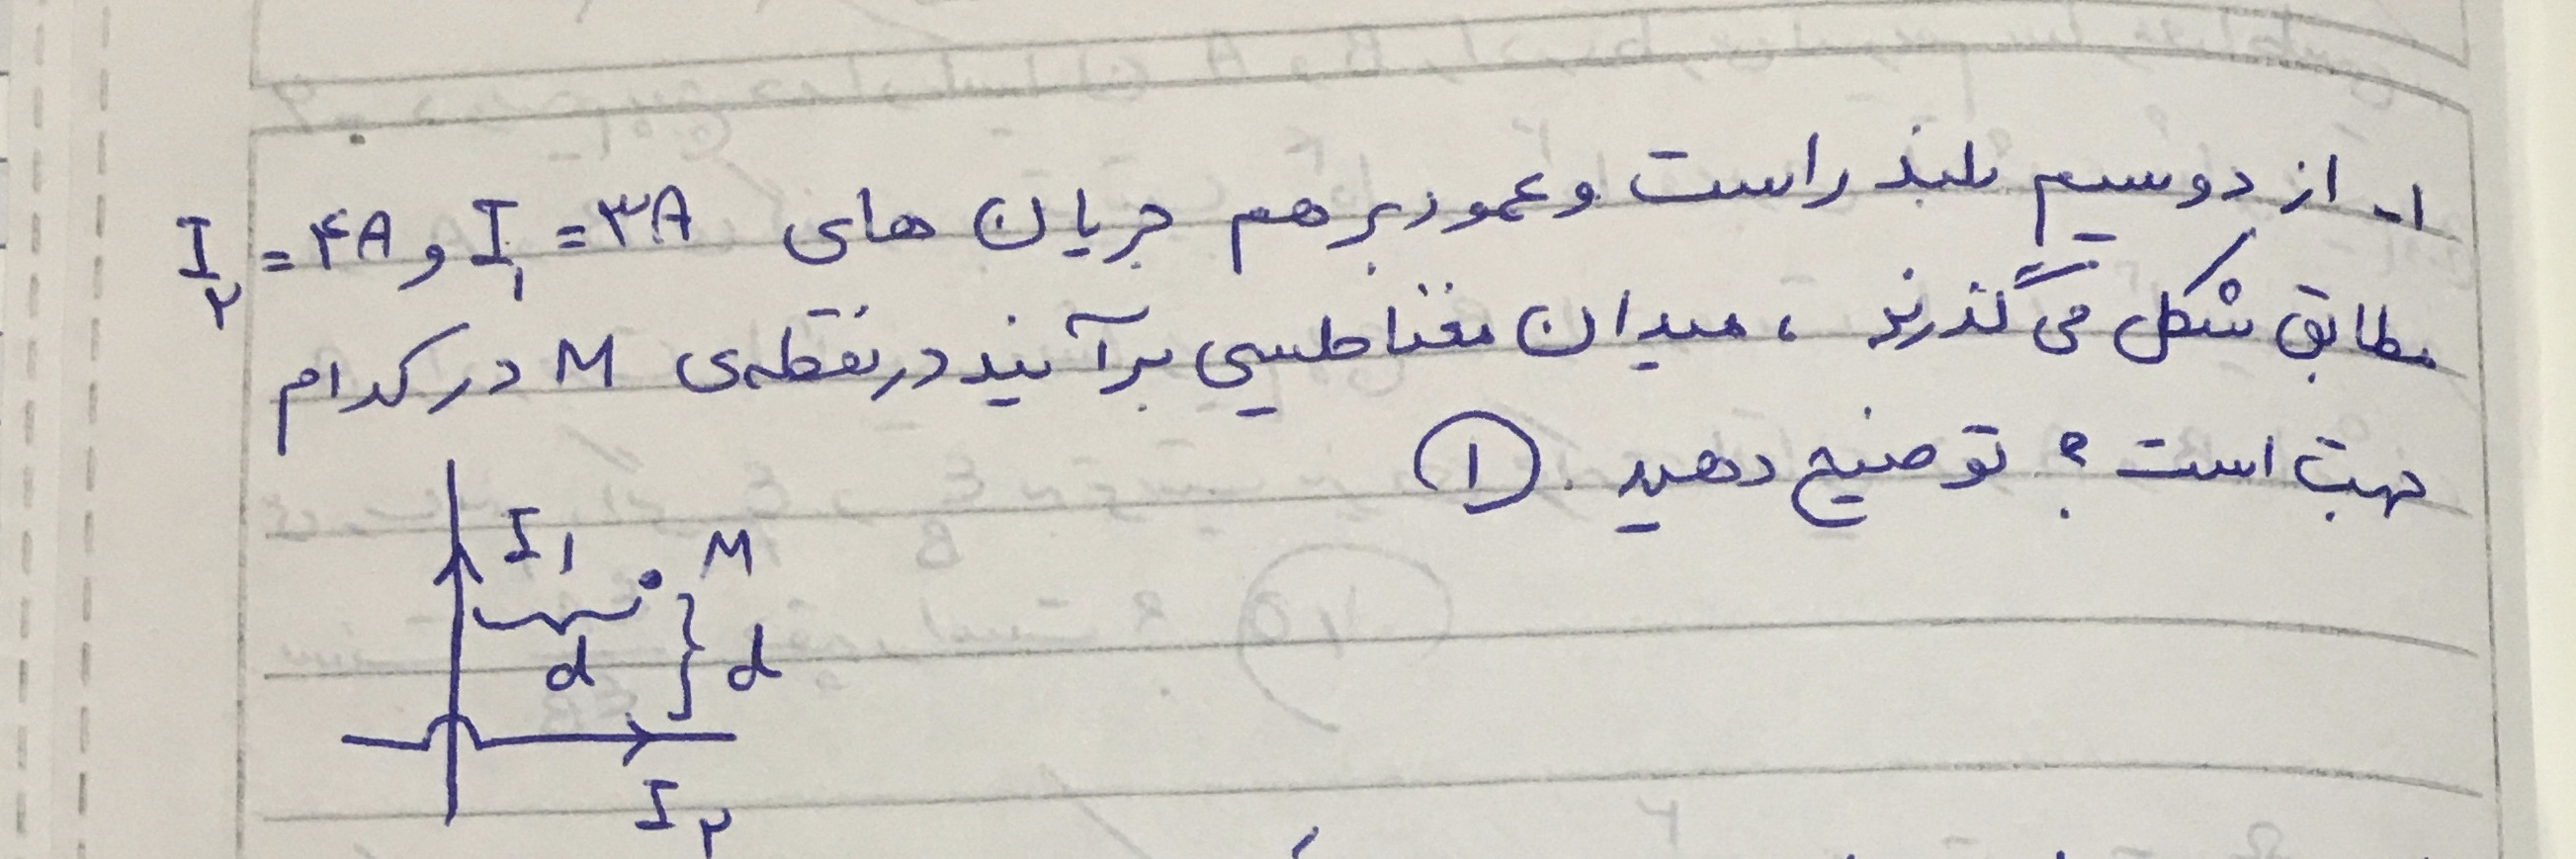 ۱- از دو سیم بلند راست و عمود بر هم جریان های I₁ = ۳A و I₂ = ۴A
مطابق شکل می گذرند ، میدان مغناطیسی برآیند در نقطه‌ی M در کدام
جهت است ؟ توضیح دهید . ۱
I₁ M
d d
I₂